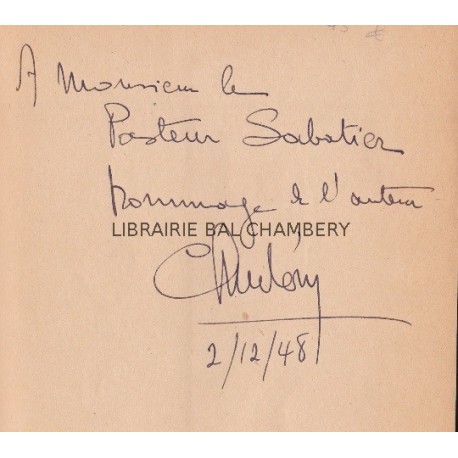 A Monsieur le
Pasteur Sabatier
hommage de l'auteur
LIBRAIRIE BAL CHAMBERY
2/12/48